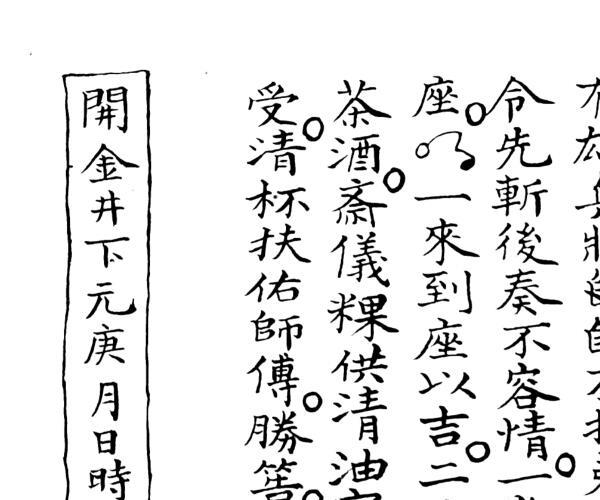 令先斬後奏不容情一
座一來到座以吉二
茶酒齋儀粿供清油
受清杯扶佑師傅勝筶
開金井下元庚月日時